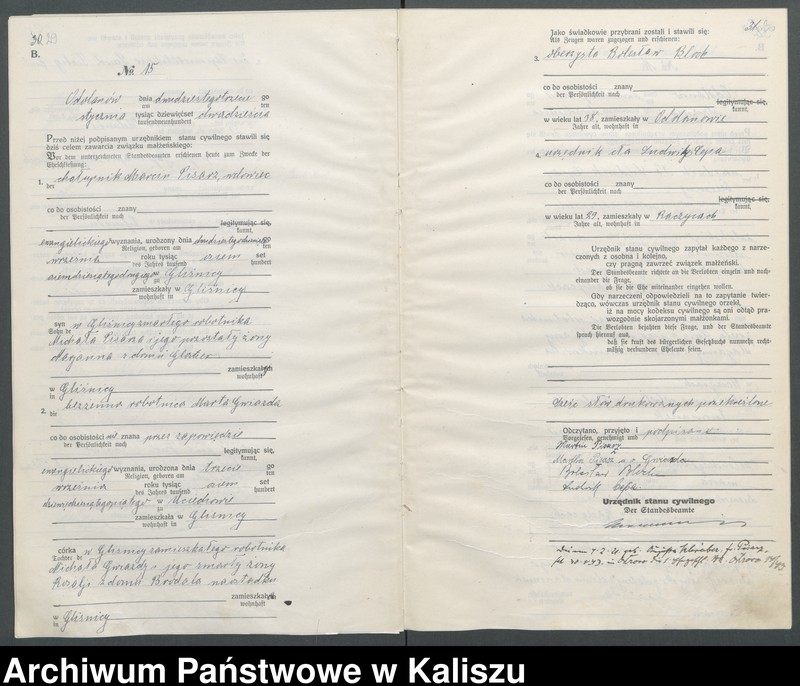 30.
29
B.
№ 15
Odolanów dnia dwudziestegotrzeciego
am ten
stycznia tysiąc dziewięćset dwudziestego
tausendneunhundert
Przed niżej podpisanym urzędnikiem stanu cywilnego stawili się
dziś celem zawarcia związku małżeńskiego:
Vor dem unterzeichneten Standesbeamten erschienen heute zum Zwecke der
Eheschließung:
1. chałupnik Marcin Pisarz, wdowiec
der
co do osobistości znany
der Persönlichkeit nach
legitymując się,
kannt,
ewangelickiego wyznania, urodzony dnia go
Religion, geboren am ten
września roku tysiąc osiem set
des Jahres tausend hundert
w Gliśnicy
zu
zamieszkały w Gliśnicy
wohnhaft in
syn w Gliśnicy zmarłego robotnika
Sohn de
Michała Pisarza i jego pozostałej żony
z domu
zamieszkałych
wohnhaft
w Gliśnicy
in
2. bezżenna robotnica Marta Gwiazda
die
co do osobistości znana przez zapowiedzie
der Persönlichkeit nach
legitymując się,
kannt,
ewangelickiego wyznania, urodzona dnia trzeciego
Religion, geboren am ten
września roku tysiąc osiem set
des Jahres tausend hundert
dziewięćdziesiątegopiątego w Uciechowie
zu
zamieszkała w Gliśnicy
wohnhaft in
córka w Gliśnicy zamieszkałego robotnika
Tochter de
Michała Gwiazdy i jego zmarłej żony
Rozalji z domu
zamieszkałych
wohnhaft
w Gliśnicy
in
31.
Jako świadkowie przybrani zostali i stawili się:
Als Zeugen waren zugezogen und erschienen:
3. Bolesław Bloch
co do osobistości znany
der Persönlichkeit nach
legitymując się,
kannt,
w wieku lat 38, zamieszkały w Odolanowie
Jahre alt, wohnhaft in
4. Ludwig Cepa
co do osobistości znany
der Persönlichkeit nach
legitymując się,
kannt,
w wieku lat 59, zamieszkały w Raczycach
Jahre alt, wohnhaft in
Urzędnik stanu cywilnego zapytał każdego z narze-
czonych z osobna i kolejno,
czy pragną zawrzeć związek małżeński.
Der Standesbeamte richtete an die Verlobten einzeln und nach-
einander die Frage,
ob sie die Ehe miteinander eingehen wollen.
Gdy narzeczeni odpowiedzieli na to zapytanie twier-
dząco, wówczas urzędnik stanu cywilnego orzekł,
iż na mocy kodeksu cywilnego są oni odtąd pra-
wozgodnie skojarzonymi małżonkami.
Die Verlobten bejahten diese Frage, und der Standesbeamte
sprach hierauf aus,
daß sie kraft des bürgerlichen Gesetzbuchs nunmehr recht-
mäßig verbundene Eheleute seien.
słów drukowanych przekreślono
Odczytano, przyjęto i podpisano
Vorgelesen, genehmigt und
Martin Pisarz
Marta Pisarz u. o. Gwiazda
Bolesław Bloch
Ludwik Cepa
Urzędnik stanu cywilnego
Der Standesbeamte
Archiwum Państwowe w Kaliszu